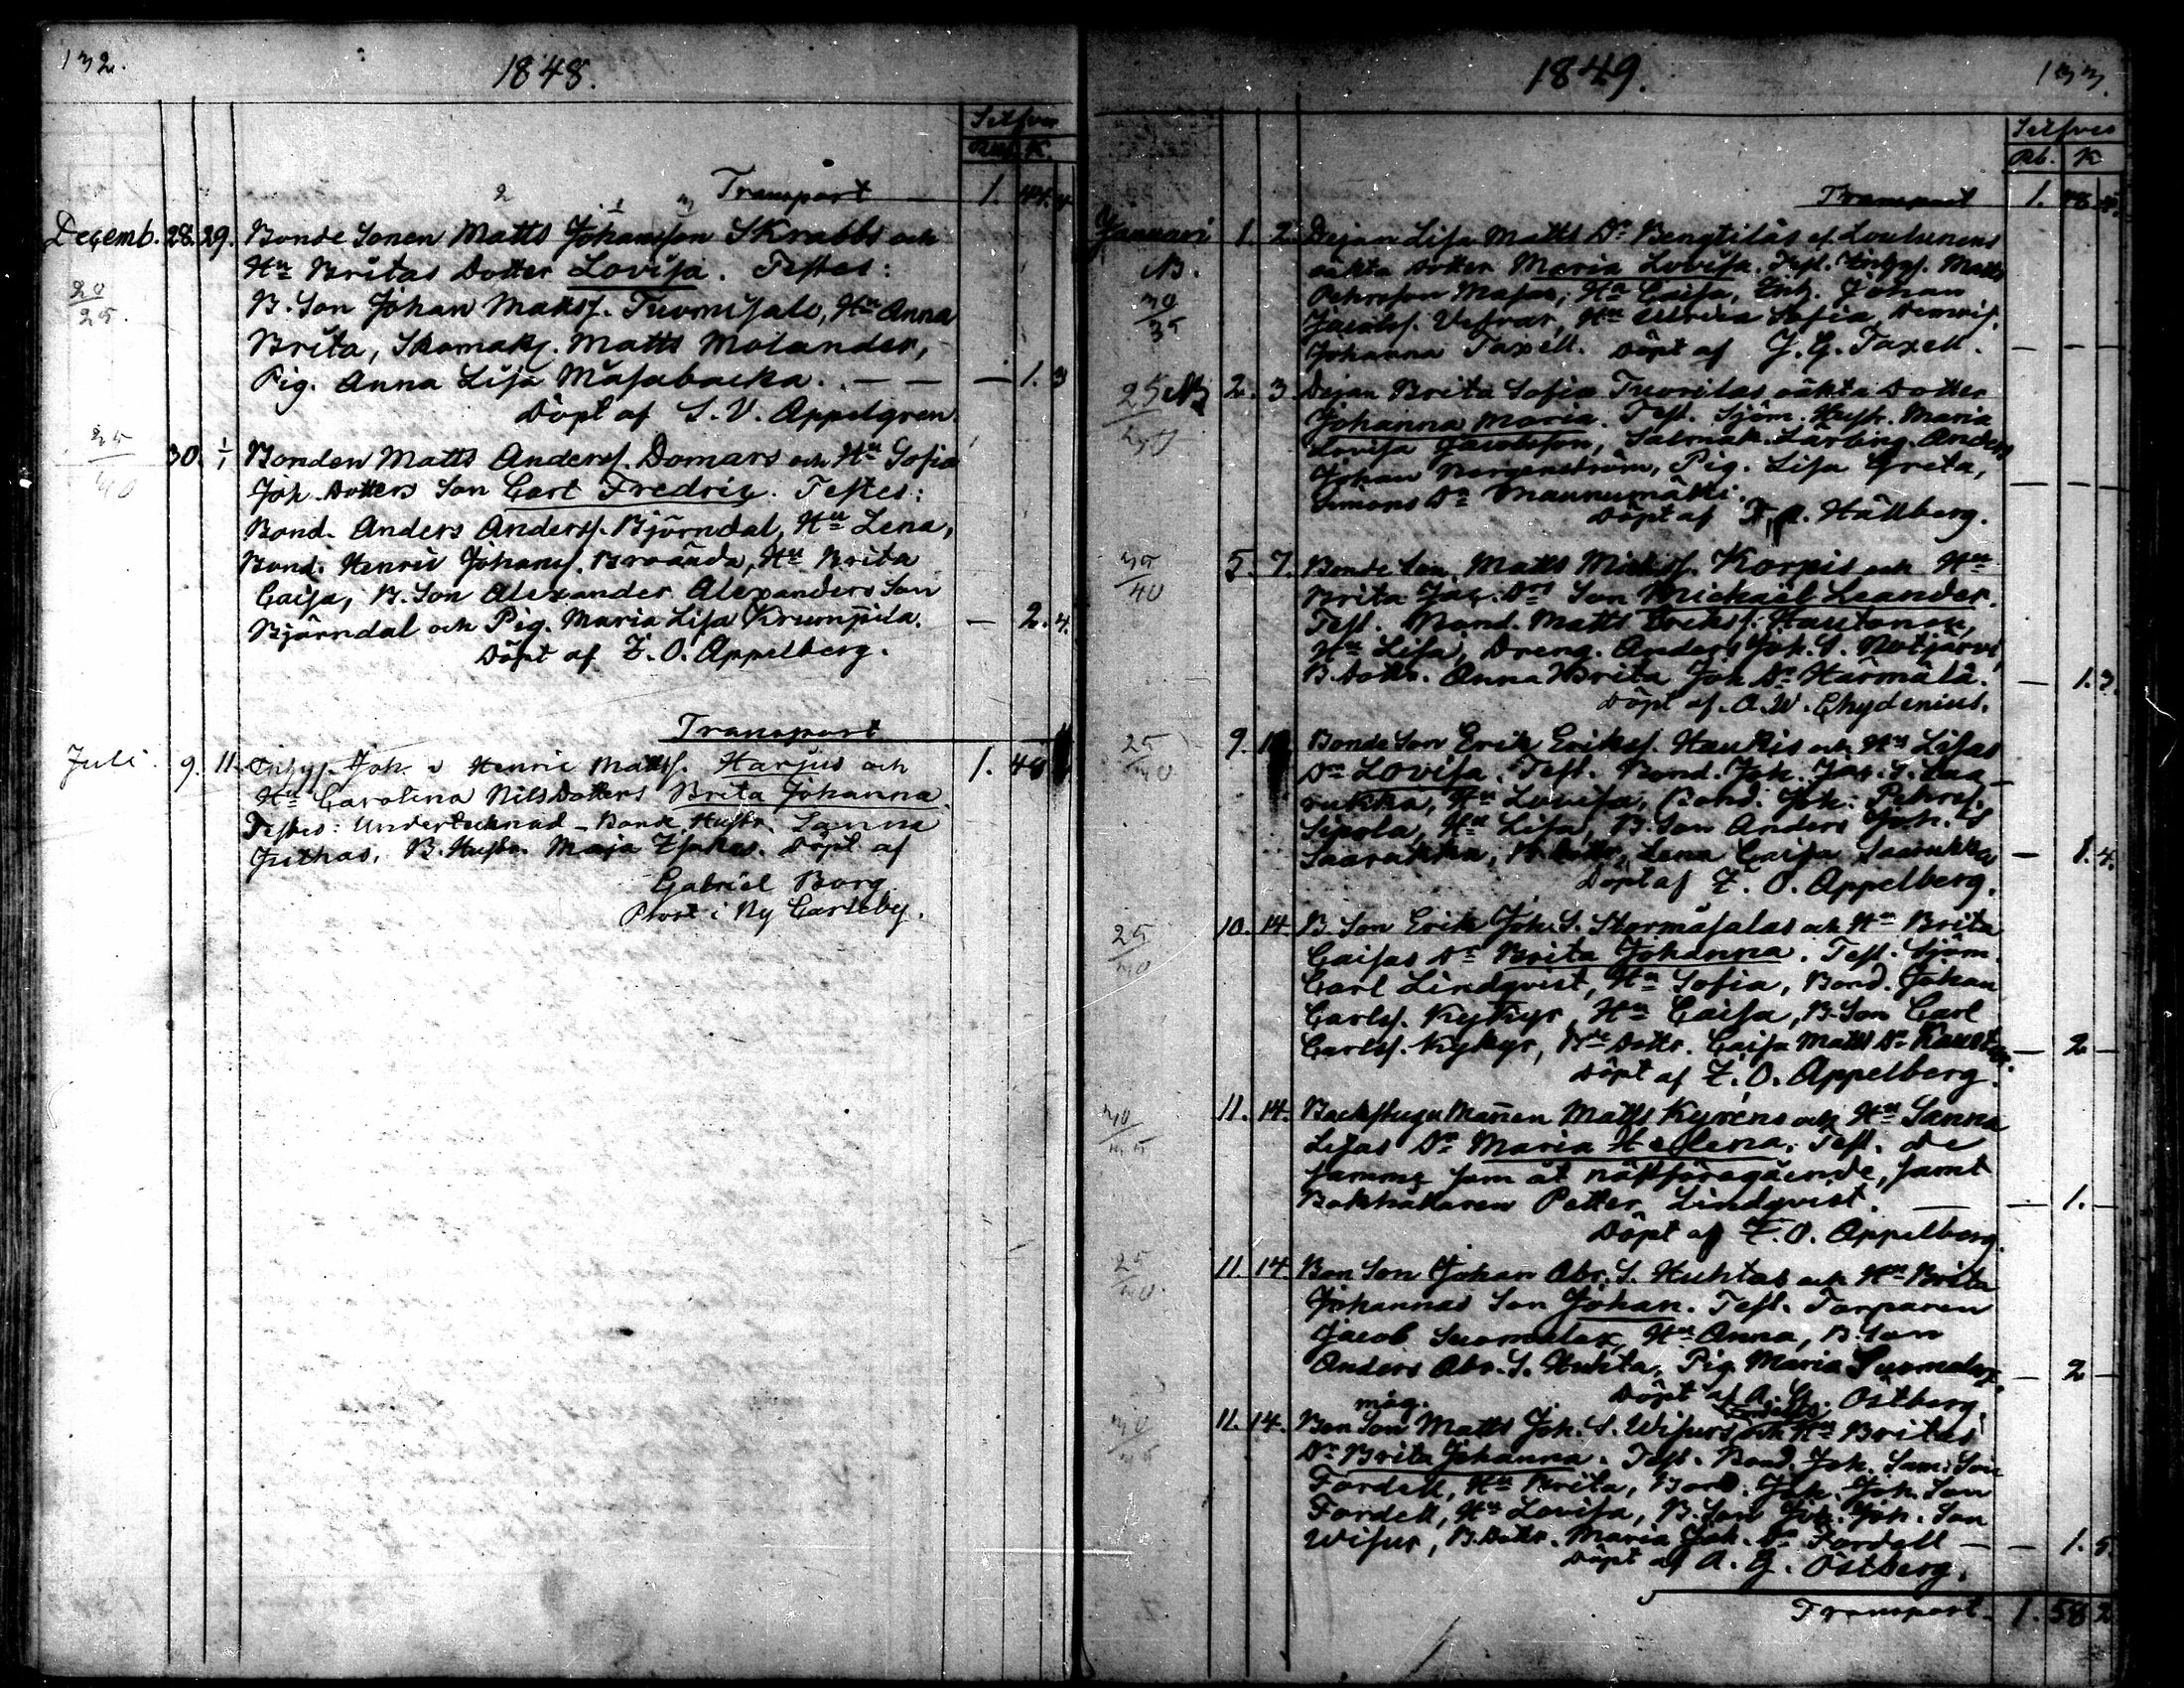 132.
1848.
Silfver
Rub. K.
Transport 1. 44.
Decemb. 28. 29. Bonde Sonen Matts Johansson Skrabbs och
Hu Britas Dotter Lovisa. Testes:
20/25. B. Son Johan Matts. Tuomisalo, Hu Anna
Brita, Skomak. Matts Molander,
Pig. Anna Lisa Måsabacka. — — — 1. 3
Döpt af S. V. Appelgren.
25/30 30. 1/1 Bonden Matts Anderss. Domars och Hu Sofia
Joh. Dotters Son Carl Fredric. Testes:
Bond. Anders Anderss. Björndal, Hu Lena,
Bond. Henric Johanss. Broända, Hu Brita
Caisa, B. Son Alexander Alexanders Son
Björndal och Pig. Maria Lisa Krumpila. — 2. 4.
Döpt af Z. O. Appelberg.
Transport
Juli. 9. 11. Inhys. Joh. Henric Matts. Harjus och 1. 48
Hu Carolina Nils Dotters Brita Johanna
Testes: Undertecknad – Bonde Hustr. Sanna
Juthas, B. Hustr. Maja Isakas. Döpt af
Gabriel Borg
Prost i Ny Carleby.
1849.
133.
Silfver
Rb. K
Transport 1. 48
Januari 1. 2. Dejan Lisa Matts Dr Bengtilas el. Loulunens
NB. oäkta dotter Maria Lovisa. Test. Inhys. Matts
30/35 Pehrsson Masar, Hu Caisa, Inh. Johan
Jacobs. Vesvar, Hu Ulrica Sofia, Demois.
Johanna Taxell. Döpt af J. G. Taxell. — — —
25/30 NB 2. 3 Dejan Brita Sofia Tuorilas oäkta Dotter
Johanna Maria. Test. Sjöm. Hustr. Maria
Lovisa Jacobsson, Lärling. Anders
Johan Morgenström, Pig. Lisa Greta,
Simons Dr Maunumäki. — — —
Döpt af F. A. Hällberg.
35/40 5. 7. Bonde Son Matts Mickels. Korpis och Hu
Brita Jac. Drs Son Mickaël Leander.
Test. Bond. Matts Eriks. Hautonen,
Hu Lisa, Dreng. Anders Joh. S. Notjärvi,
B. Dottr. Anna Brita Joh Dr Härmälä. — 1. 3.
Döpt af A. W. Chydenius.
25/30 9. Bonde Son Erik Eriks. Haukis och Hu Lisas
Dr Lovisa. Test. Bond. Joh. Jac. S. Saa-
rukka, Hu Lovisa, Bond. Joh. Pehrss.
Sipola, Hu Lisa, B. Son Anders Joh. S
Saarukka, B. Dottr. Lena Caisa Saarukka — 1. 4.
Döpt af Z. O. Appelberg.
25/30 10. 14. B. Son Erik Joh. S. Stormåsalas och Hu Brita
Caisas Dr Brita Johanna. Test. Sjöm.
Carl Lindqvist, Hu Sofia, Bond. Johan
Carls. Kykyr, Hu Caisa, B. Son Carl
Carls. Kykyr, Bde Dottr. Caisa Matts Dr — 2 —
Döpt af Z. O. Appelberg.
30/35 11. 14. Backstugu Mañen Matts Kyréns och Hu Sanna
Lisas Dr Maria Hellena. Test. de
samme som åt nästföregående, samt
Bokhållaren Petter Lindqvist. — — 1. —
Döpt af Z. O. Appelberg.
25/30. 11. 14. Bon Son Johan Abr. S. Huhtas och Hu Brita
Johannas Son Johan. Test. Torparen
Jacob Suomelax, Hu Anna, B. Son
Anders Abr. S. Huhta, Pig. Maria Suomelax. — 2 —
Döpt af A. G. Östberg
30/35 11. 14. Bon måg. Son Matts Joh. S. Wisurs och Hu Britas
Dr Brita Johanna. Test. Bond. Joh. Sam. Son
Fordell, Hu Brita, Bond. Joh. Joh. Son
Fordell, Hu Lovisa, B. Son Joh. Joh. Son
Wisur, B. Dottr. Maria Joh. Dr Fordell — — 1. 5.
Döpt af A. G. Östberg.
Transport. 1. 58 2